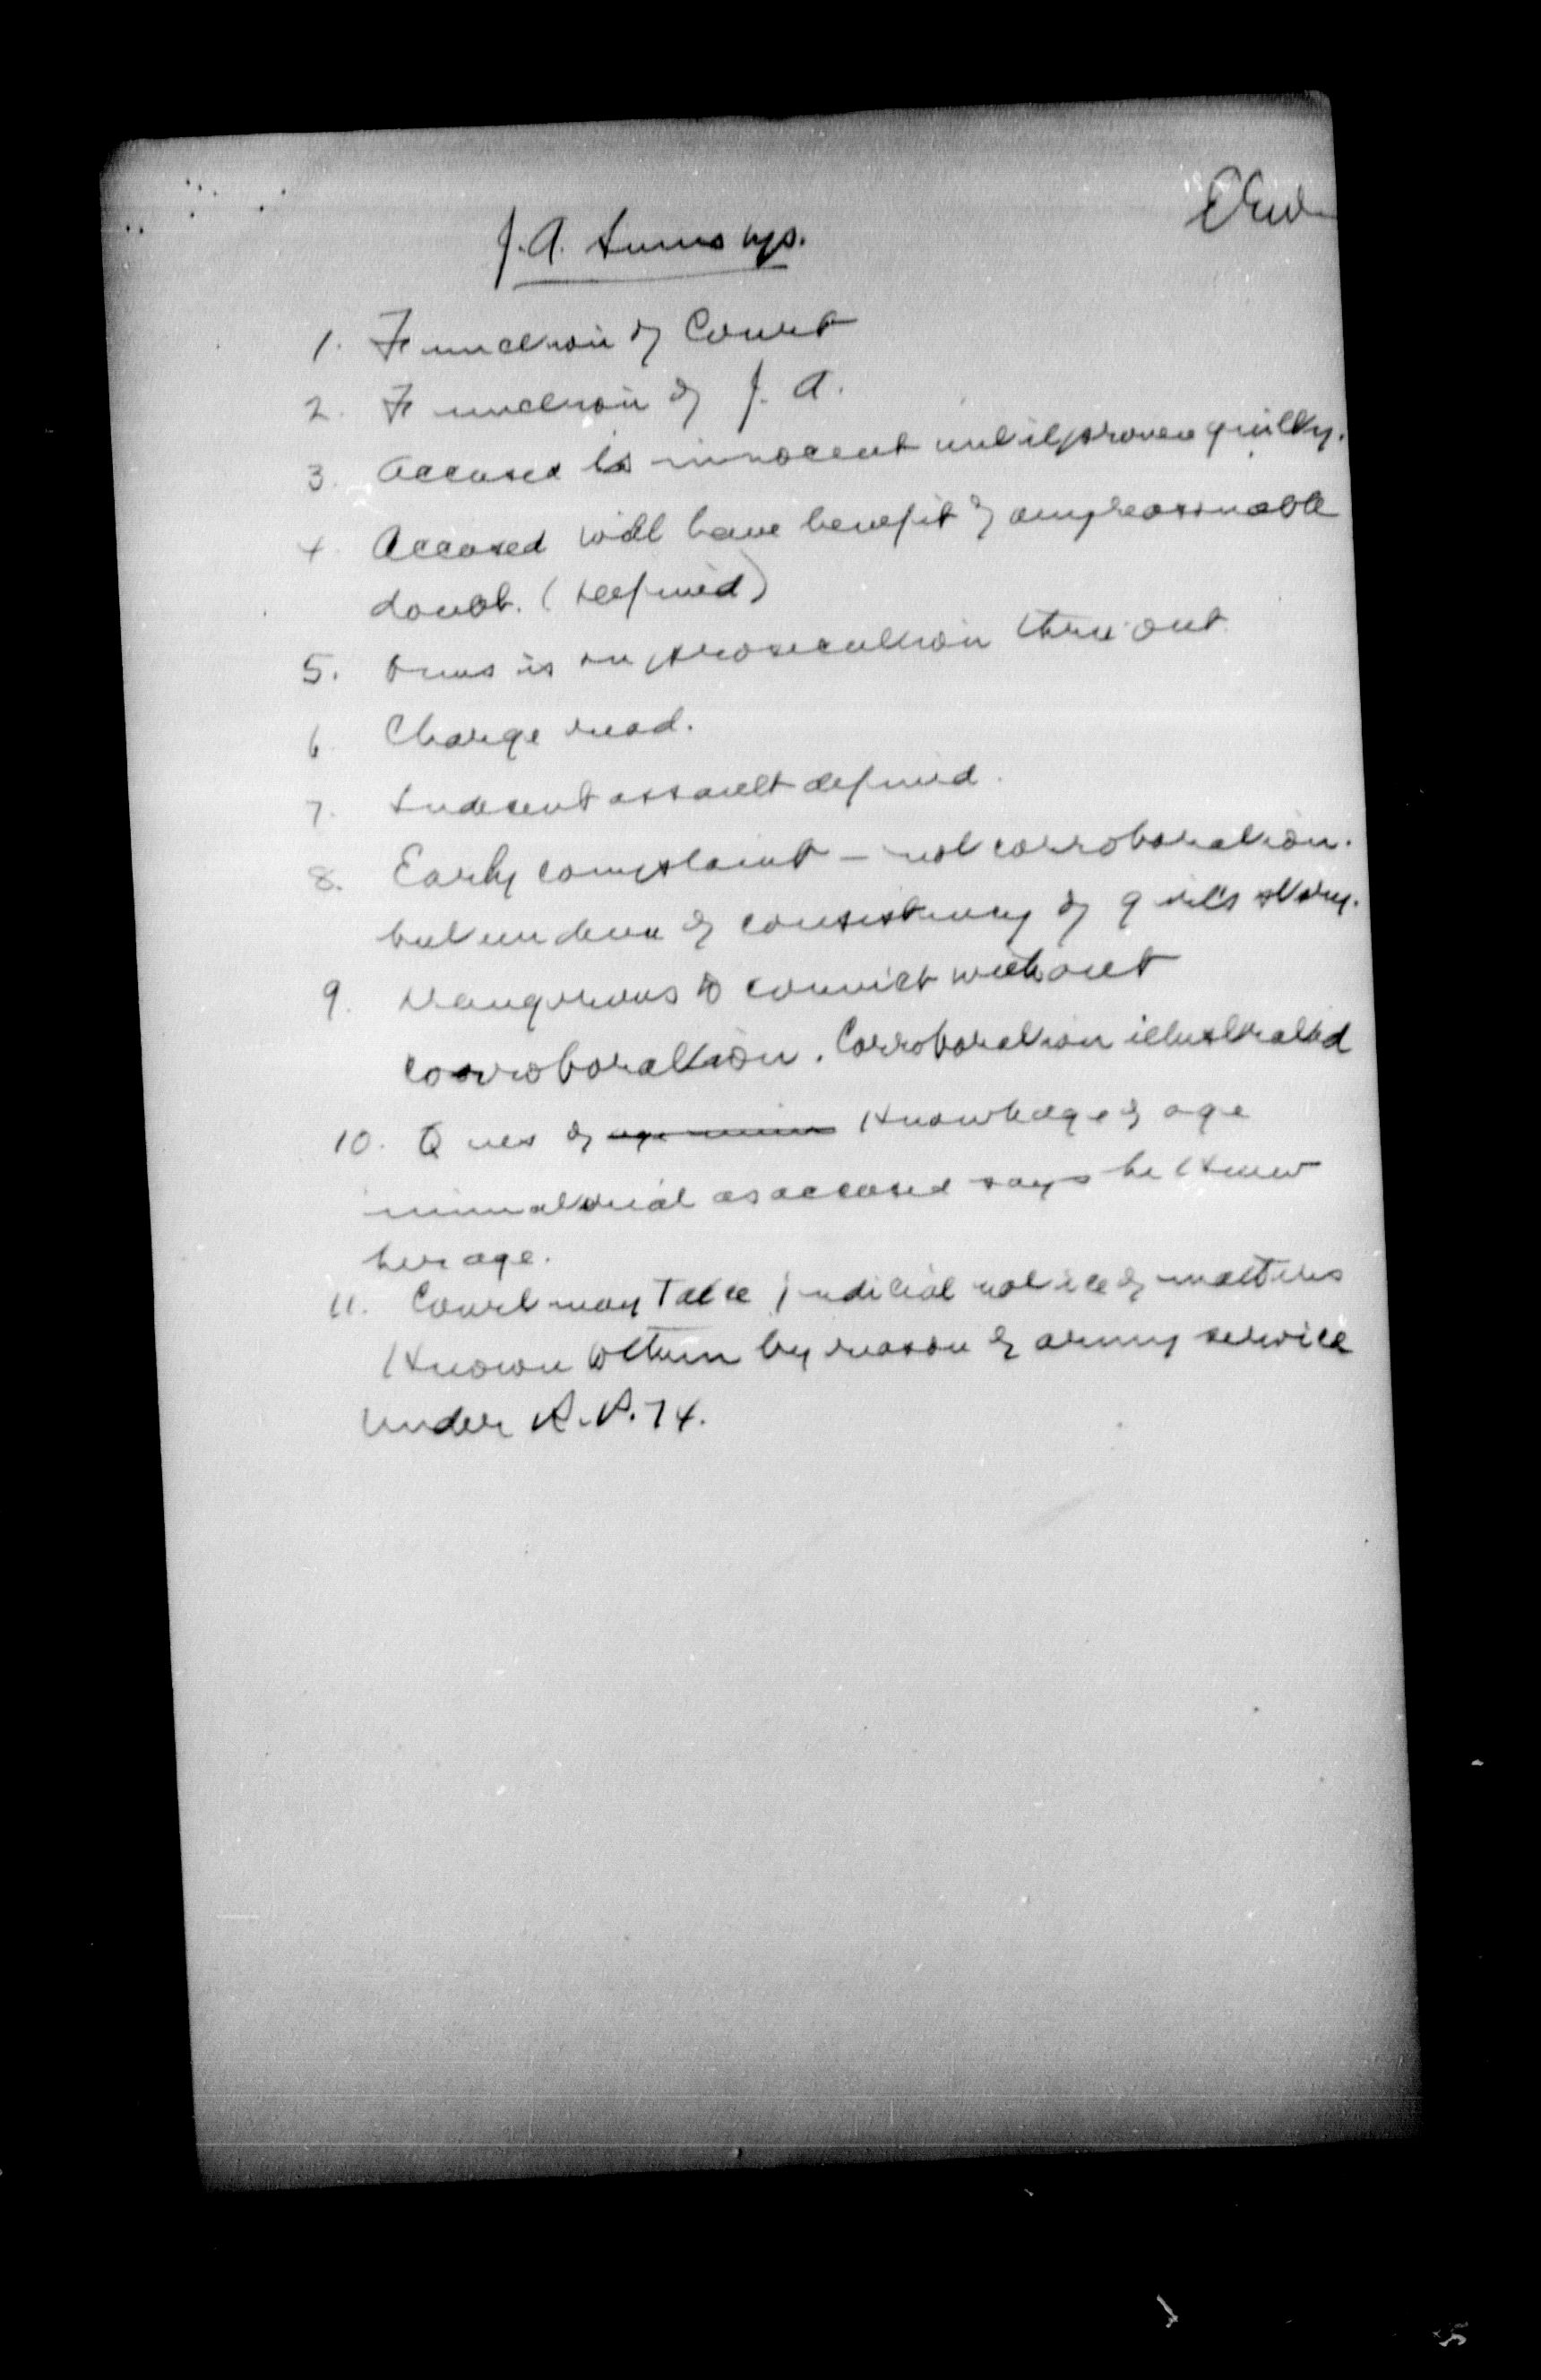 J.A. sums up.
1. Function of Court
2. Function of J.A.
3. Accused is innocent until proven guilty.
4. Accused will have benefit of any reasonable
doubt. (Defined)
5. Onus is on prosecution thru'out.
6. Charge read.
7. Indecent assault defined.
8. Early complaint – not corroboration.
but evidence of consistency of girl's story.
9. Dangerous to convict without
corroboration. Corroboration illustrated
10. Ques of age Knowledge of age
immaterial as accused says he Knew
her age.
11. Court may Take judicial notice of matters
Known to them by reason of army service
under R.P. 74.